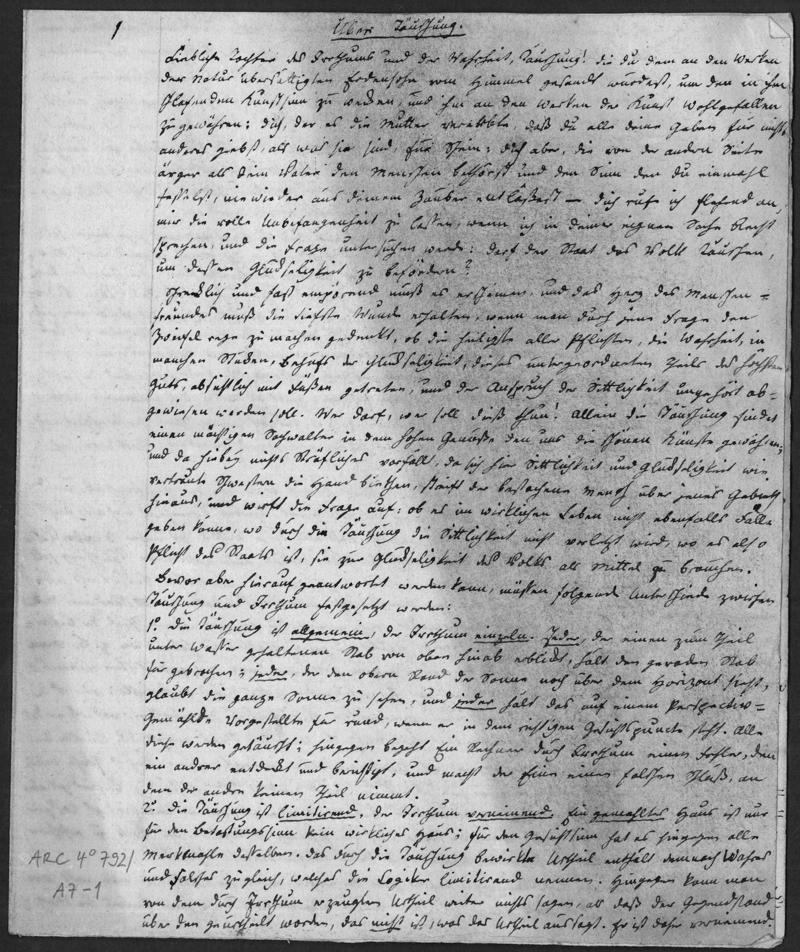 1
Über Täuschung.
Liebliche Tochter des Irrthums und der Wahrheit, Täuschung! die du dem an den Werken
der Natur übersättigten Erdensohn vom Himmel gesandt wurdest, um den in ihm
schlafenden Kunstsinn zu wecken, und ihm an den Werken der Kunst Wohlgefallen
zu gewähren; dich, der es die Mutter verargte, daß du alle deine Gaben für nichts
anderes giebst, als was sie sind, für Schein; dich aber, die von der andern Seite
ärger als dein Vater den Menschen bethörst und den Sinn den du einmahl
fesselst, nie wieder aus deinem Zauber entlässest — dich ruf ich flehend an,
mir die volle Unbefangenheit zu lassen, wenn ich in deiner eignen Sache Recht
sprechen, und die Frage untersuchen werde: darf der Staat das Volk täuschen,
um dessen Glückseligkeit zu befördern?
Schrecklich und fast empörend muß es erscheinen, und das Herz des Menschen=
freundes muß die tiefste Wunde erhalten, wenn man durch jene Frage den
Zweifel rege zu machen gedenkt, ob die heiligste aller Pflichten, die Wahrheit, in
manchen Stücken, behufs der Glückseligkeit, dieses untergeordneten Theils des höchsten
Guts, absichtlich mit Füßen getreten, und der Anspruch der Sittlichkeit ungehört ab=
gewiesen werden soll. Wer darf, wer soll dieß thun! Allein die Täuschung findet
einen mächtigen Sachwalter in dem hohen Genusse den uns die schönen Künste gewähren;
und da hiebey nichts Sträfliches vorfällt, da sich hier Sittlichkeit und Glückseligkeit wie
vertraute Schwestern die Hand biethen, streift der bestochene Mensch über jenes Gebieth
hinaus, und wirft die Frage auf: ob es im wirklichen Leben nicht ebenfalls Fälle
geben könne, wo durch die Täuschung die Sittlichkeit nicht verletzt wird, wo es also
Pflicht des Staats ist, sie zur Glückseligkeit des Volks als Mittel zu brauchen.
Bevor aber hierauf geantwortet werden kann, müssen folgende Unterschiede zwischen
Täuschung und Irrthum festgesetzt werden:
1.º Die Täuschung ist allgemein, der Irrthum einzeln. Jeder, der einen zum Theil
unter Wasser gehaltenen Stab von oben hinab erblickt, hält den geraden Stab
für gebrochen; jeder, der den obern Rand der Sonne noch über dem Horizont sieht,
glaubt die ganze Sonne zu sehen, und jeder hält das auf einem Perspectiv=
Gemählde Vorgestellte für rund, wenn er in dem richtigen Gesichtspuncte steht. Alle
diese werden getäuscht; hingegen begeht Ein Rechner durch Irrthum einen Fehler, den
ein andrer entdeckt und berichtigt, und macht der Eine einen falschen Schluß, an
dem der andre keinen Theil nimmt.
2.º Die Täuschung ist limitirend, der Irrthum verneinend. Ein gemahltes Haus ist nur
für den Betastungssinn kein wirkliches Haus; für den Gesichtssinn hat es hingegen alle
Merkmahle desselben. Das durch die Täuschung bewirkte Urtheil enthält demnach Wahres
und Falsches zugleich, welches die Logiker limitirend nennen. Hingegen kann man
von dem durch Irrthum erzeugten Urtheil weiter nichts sagen, als daß der Gegenstand
über den geurtheilt worden, das nicht ist, was das Urtheil aussagt. Er ist daher verneinend.
ARC 4º 792/
A7-1